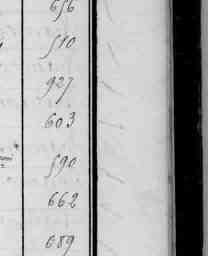 656
510
927
603
590
662
689